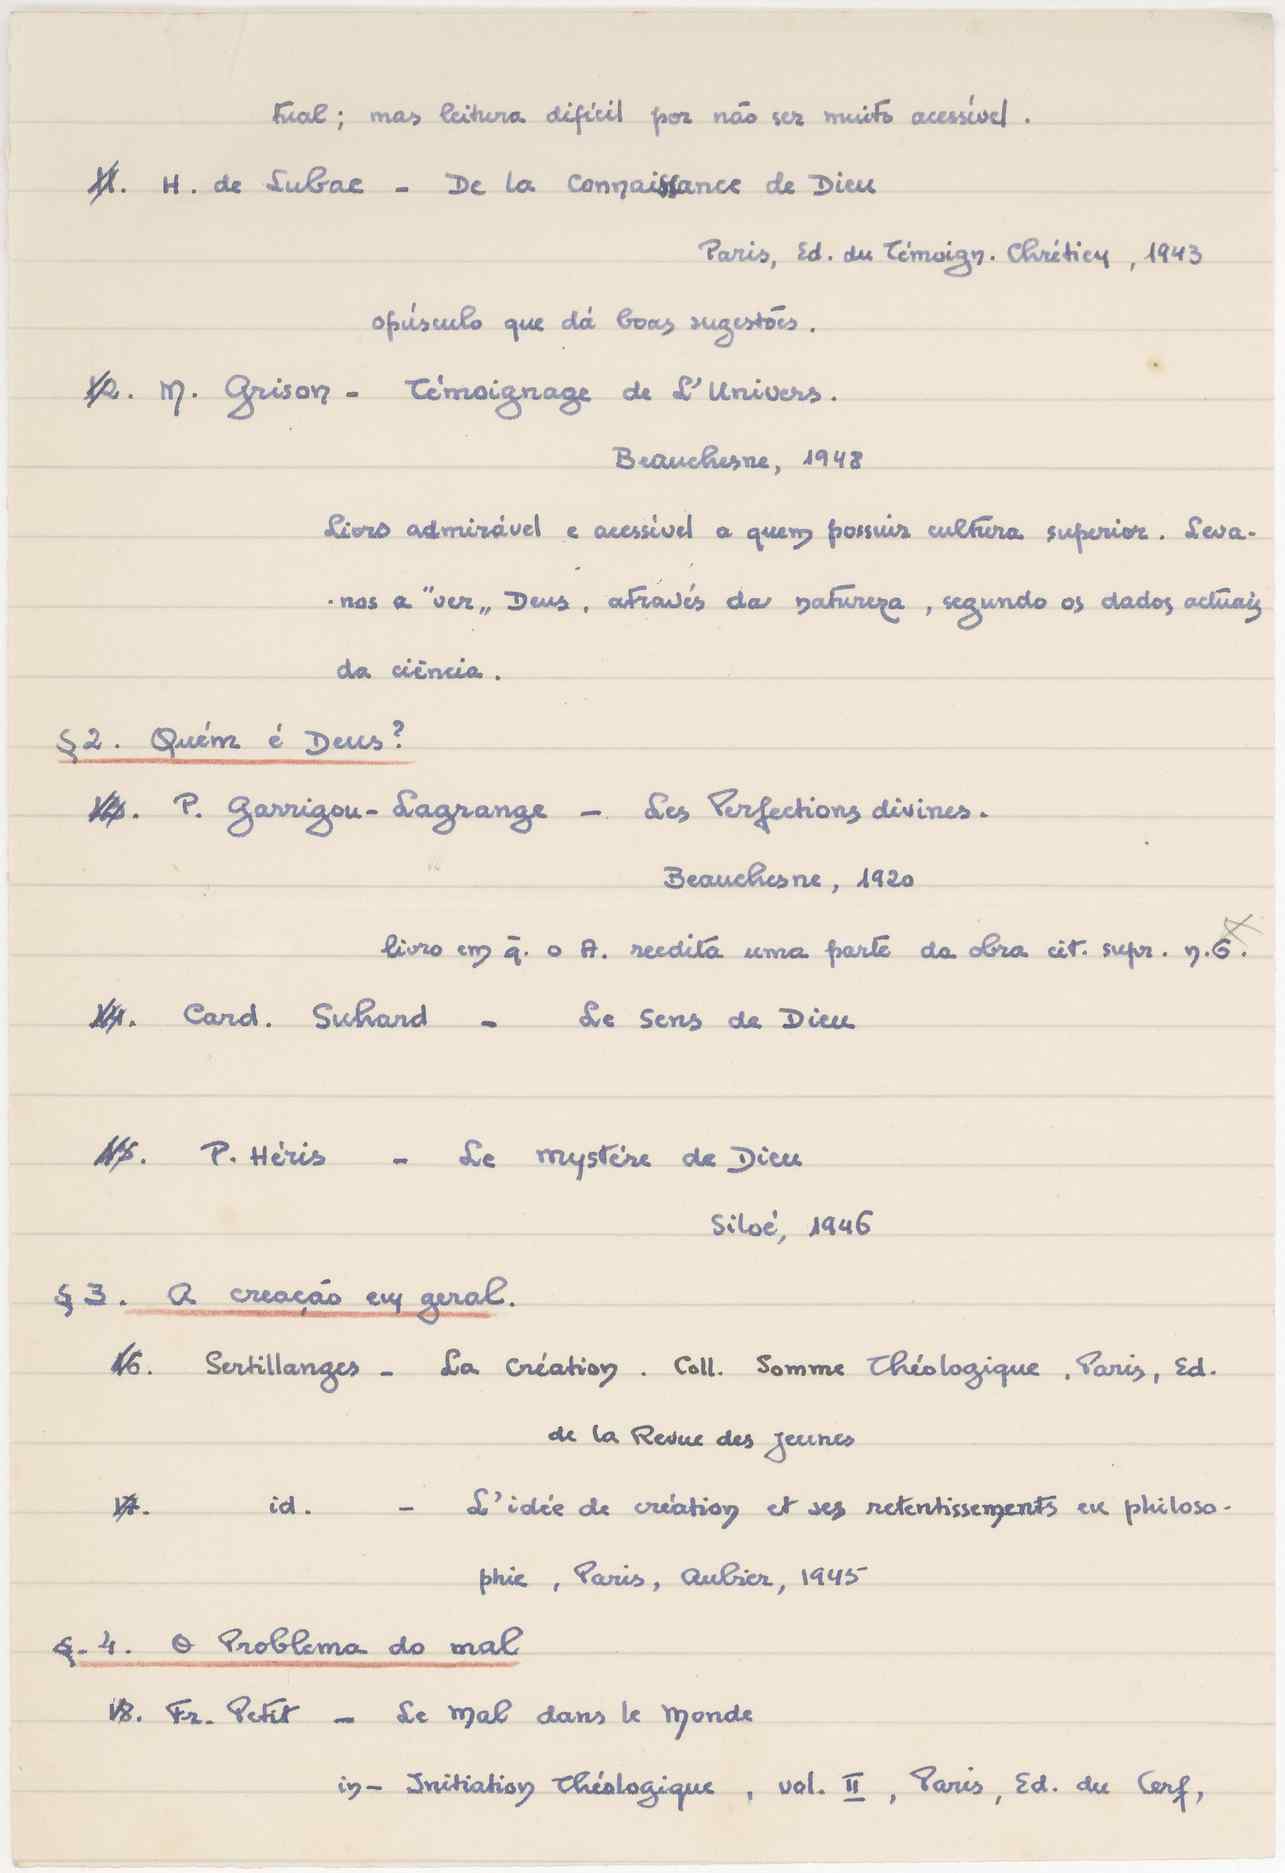 tual; mas leitura difícil por não ser muito acessível.
11. H. de Lubac - De la Connaissance de Dieu
Paris, Ed. du Témoign. Chrétien, 1943
opúsculo que dá boas sugestões.
12. M. Grison - Témoignage de L'Univers.
Beauchesne, 1948
Livro admirável e acessível a quem possuir cultura superior. Leva-
-nos a "ver„ Deus, através da natureza, segundo os dados actuais
da ciência.
§2. Quém é Deus?
P. Garrigou-Lagrange - Les Perfections divines.
Beauchesne, 1920
livro em q̄. o A. reedita uma parte da obra cit. supr. n.6.
Card. Suhard - Le Sens de Dieu
15. P. Héris - Le mystére de Dieu
Siloé, 1946
§3. A creação em geral.
16. Sertillanges - La Création. Coll. Somme Théologique, Paris, Ed.
de la Revue des Jeunes
17. id. - L'idée de création et ses retentissements en philoso-
phie, Paris, Aubier, 1945
§.4. O Problema do mal
18. Fr. Petit - Le Mal dans le Monde
in- Initiation Théologique, vol. II, Paris, Ed. du Cerf,